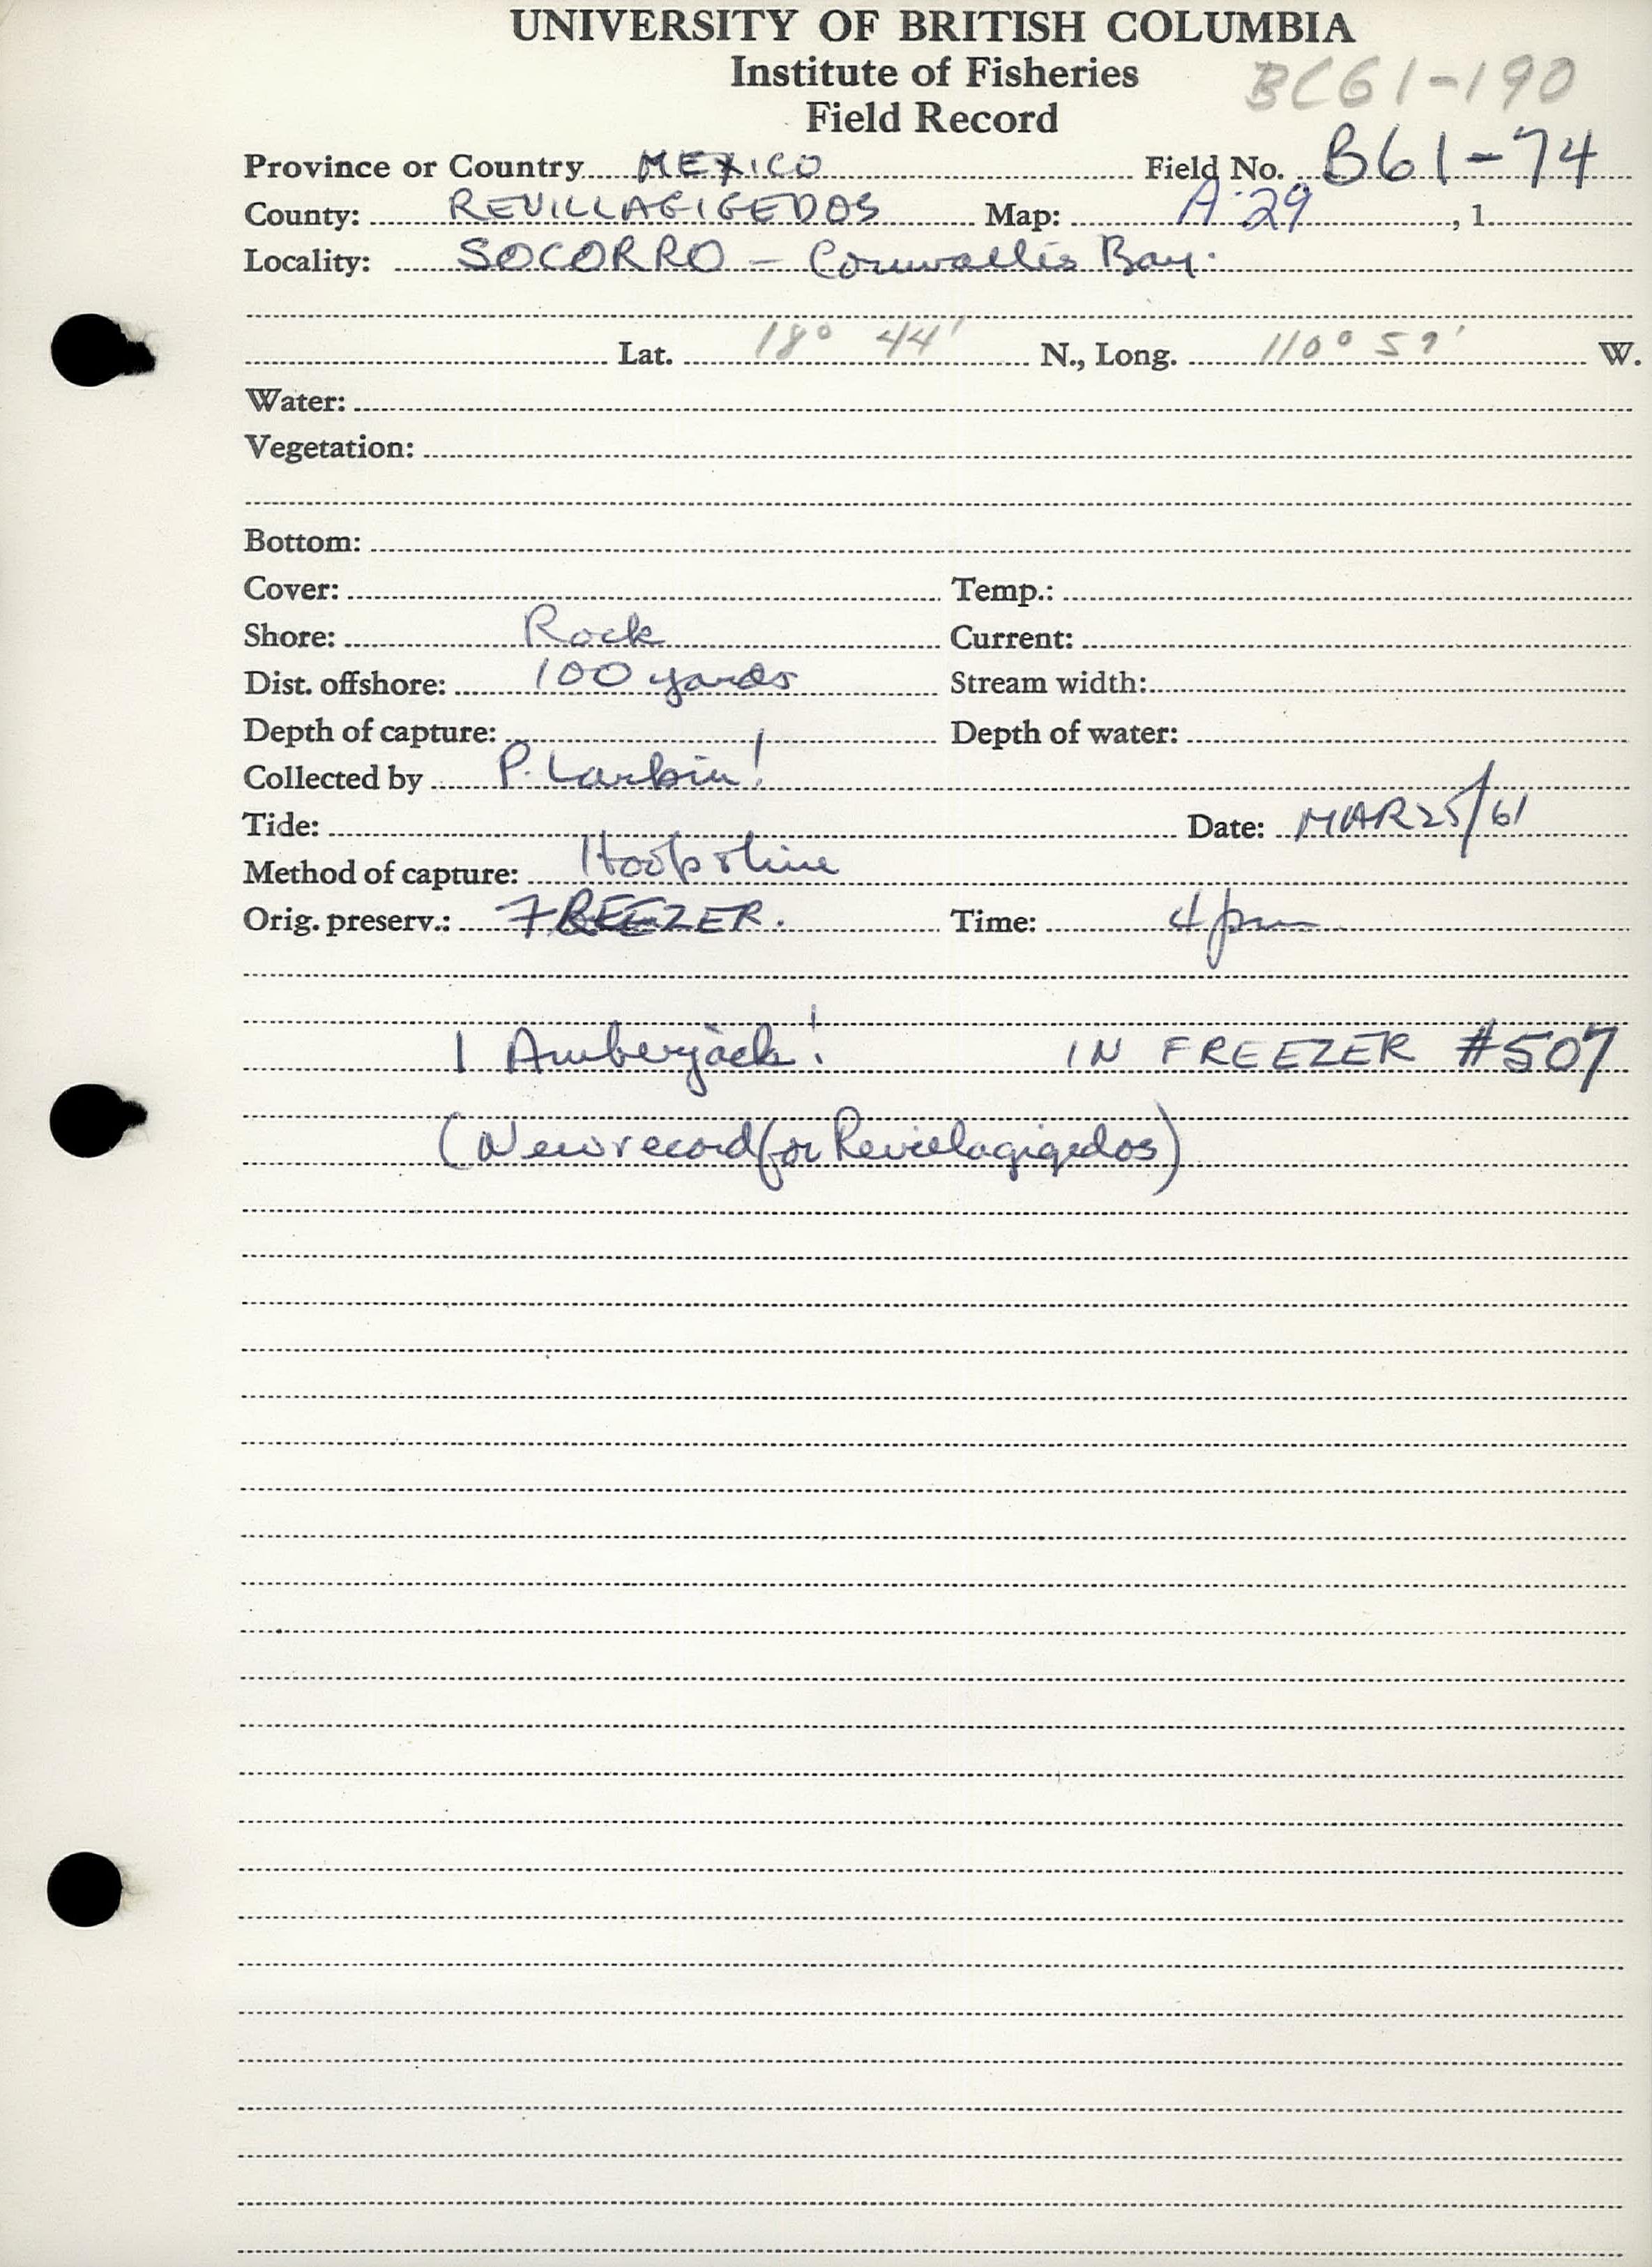 UNIVERSITY OF BRITISH COLUMBIA
Institute of Fisheries
BC61-190
Field Record
Province or Country MEXICO Field No. B61-74
County: REVILLAGIGEDOS Map: A-29, 1
Locality: SOCORRO - Cornwallis Bay.
Lat. 18° 44' N., Long. 110° 59' W.
Water:
Vegetation:
Bottom:
Cover: Temp.:
Shore: Rock Current:
Dist. offshore: 100 yards Stream width:
Depth of capture: Depth of water:
Collected by P. Larkin!
Tide: Date: MAR 25/61
Method of capture: Hook & line
Orig. preserv.: FREEZER. Time: 4 pm
1 Amberjack! IN FREEZER #507
(New record for Revillagigedos)